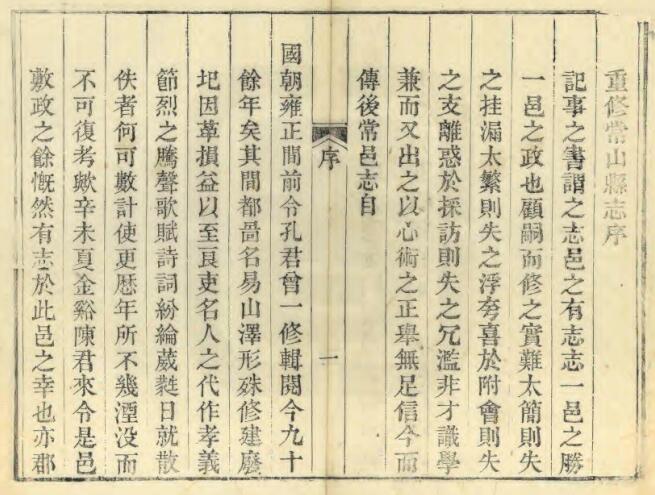 重修常山縣志序
記事之書謂之志邑之有志志一邑之勝
一邑之政也顧嗣而修之實難太簡則失
之挂漏太繁則失之浮夸喜於附會則失
之支離惑於採訪則失之冗濫非才識學
兼而又出之以心術之正舉無足信今而
傳後常邑志自
序
一
國朝雍正間前令孔君曾一修輯閱今九十
餘年矣其間都啚名易山澤形殊修建廢
圮因革損益以至良吏名人之代作孝義
節烈之騰聲歌賦詩詞紛綸葳蕤日就散
佚者何可數計使更歴年所不幾湮沒而
不可復考歟辛未夏金谿陳君來令是邑
敷政之餘慨然有志於此邑之幸也亦郡